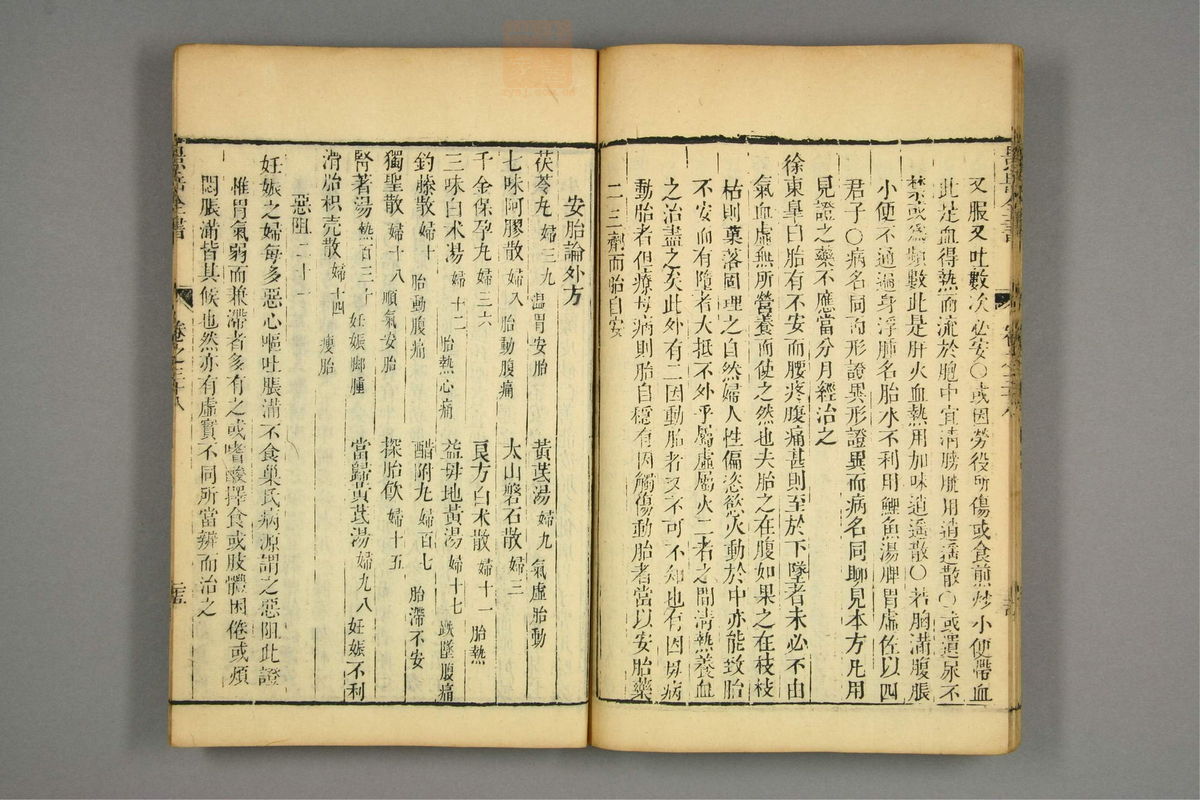 又服又吐數次必安○或因勞役所傷或食煎炒小便帶血
此是血得熱而流於胞中宜清膀胱用逍遙散○或遺尿不
禁或為頻數此是肝火血熱用加味逍遙散○若胸滿腹脹
小便不通遍身浮腫名胎水不利用鯉魚湯脾胃虛佐以四
君子○病名同而形證異形證異而病名同聊見本方凡用
見證之藥不應當分月經治之
徐東皋曰胎有不安而腰疼腹痛甚則至於下墜者未必不由
氣血虛無所營養而使之然也夫胎之在腹如果之在枝枝
枯則菓落固理之自然婦人性偏恣慾火動於中亦能致胎
不安而有墮者大抵不外乎屬虛屬火二者之間清熱養血
之治盡之矣此外有二因動胎者又不可不知也有因母病
動胎者但療母病則胎自穩有因觸傷動胎者當以安胎藥
二三劑而胎自安
安胎論外方
茯苓丸 婦三九 溫胃安胎 黃芪湯 婦九 氣虛胎動
七味阿膠散 婦八 胎動腹痛 太山磐石散 婦三
千金保孕丸 婦三六 良方白术散 婦十一 胎熱
三味白术湯 婦十二 胎熱心痛 益母地黃湯 婦十七 跌墜腹痛
鈞藤散 婦十 胎動腹痛 醋附丸 婦百七 胎滯不安
獨聖散 婦十八 順氣安胎 探胎飲 婦十五
腎著湯 熱百三十 妊娠脚腫 當歸黃芪湯 婦九八 妊娠不利
滑胎枳壳散 婦十四 瘦胎
惡阻 二十一
妊娠之婦每多惡心嘔吐脹滿不食巢氏病源謂之惡阻此證
惟胃氣弱而兼滯者多有之或嗜酸擇食或肢體困倦或煩
悶脹滿皆其候也然亦有虛實不同所當辨而治之
景岳全書 卷之三十八